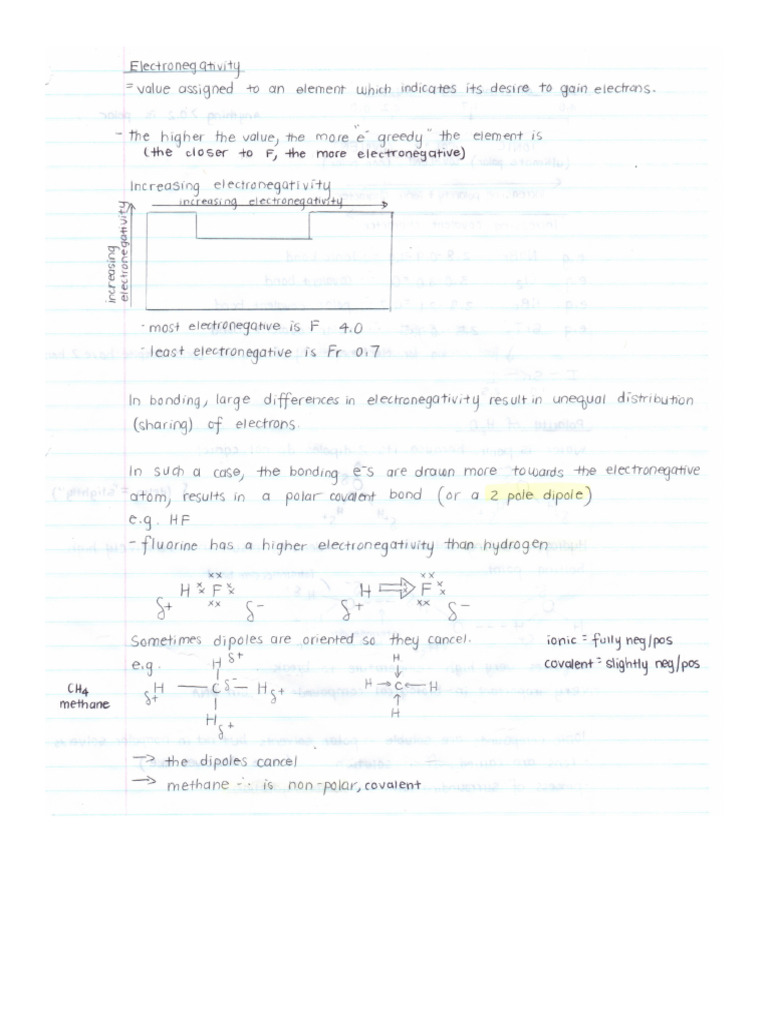 Electronegativity
= value assigned to an element which indicates its desire to gain electrons.
- the higher the value, the more "e⁻ greedy" the element is
(the closer to F, the more electronegative)
Increasing electronegativity
increasing electronegativity
increasing
electronegativity
- most electronegative is F 4.0
- least electronegative is Fr 0.7
In bonding, large differences in electronegativity result in unequal distribution
(sharing) of electrons.
In such a case, the bonding e⁻s are drawn more towards the electronegative
atom, results in a polar covalent bond (or a 2 pole dipole)
e.g. HF
- fluorine has a higher electronegativity than hydrogen
xx xx
H x F x H ⇒ F x
δ+ xx δ- δ+ xx δ-
Sometimes dipoles are oriented so they cancel.
ionic = fully neg/pos
covalent = slightly neg/pos
e.g. H δ+ H
CH4
methane
H — C δ- — H δ+ H → C ← H
δ+
H δ+ H
→ the dipoles cancel
→ methane ∴ is non-polar, covalent